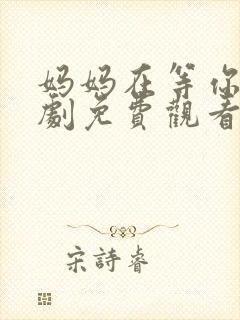 妈妈在等你
劇免費觀看
宋詩睿